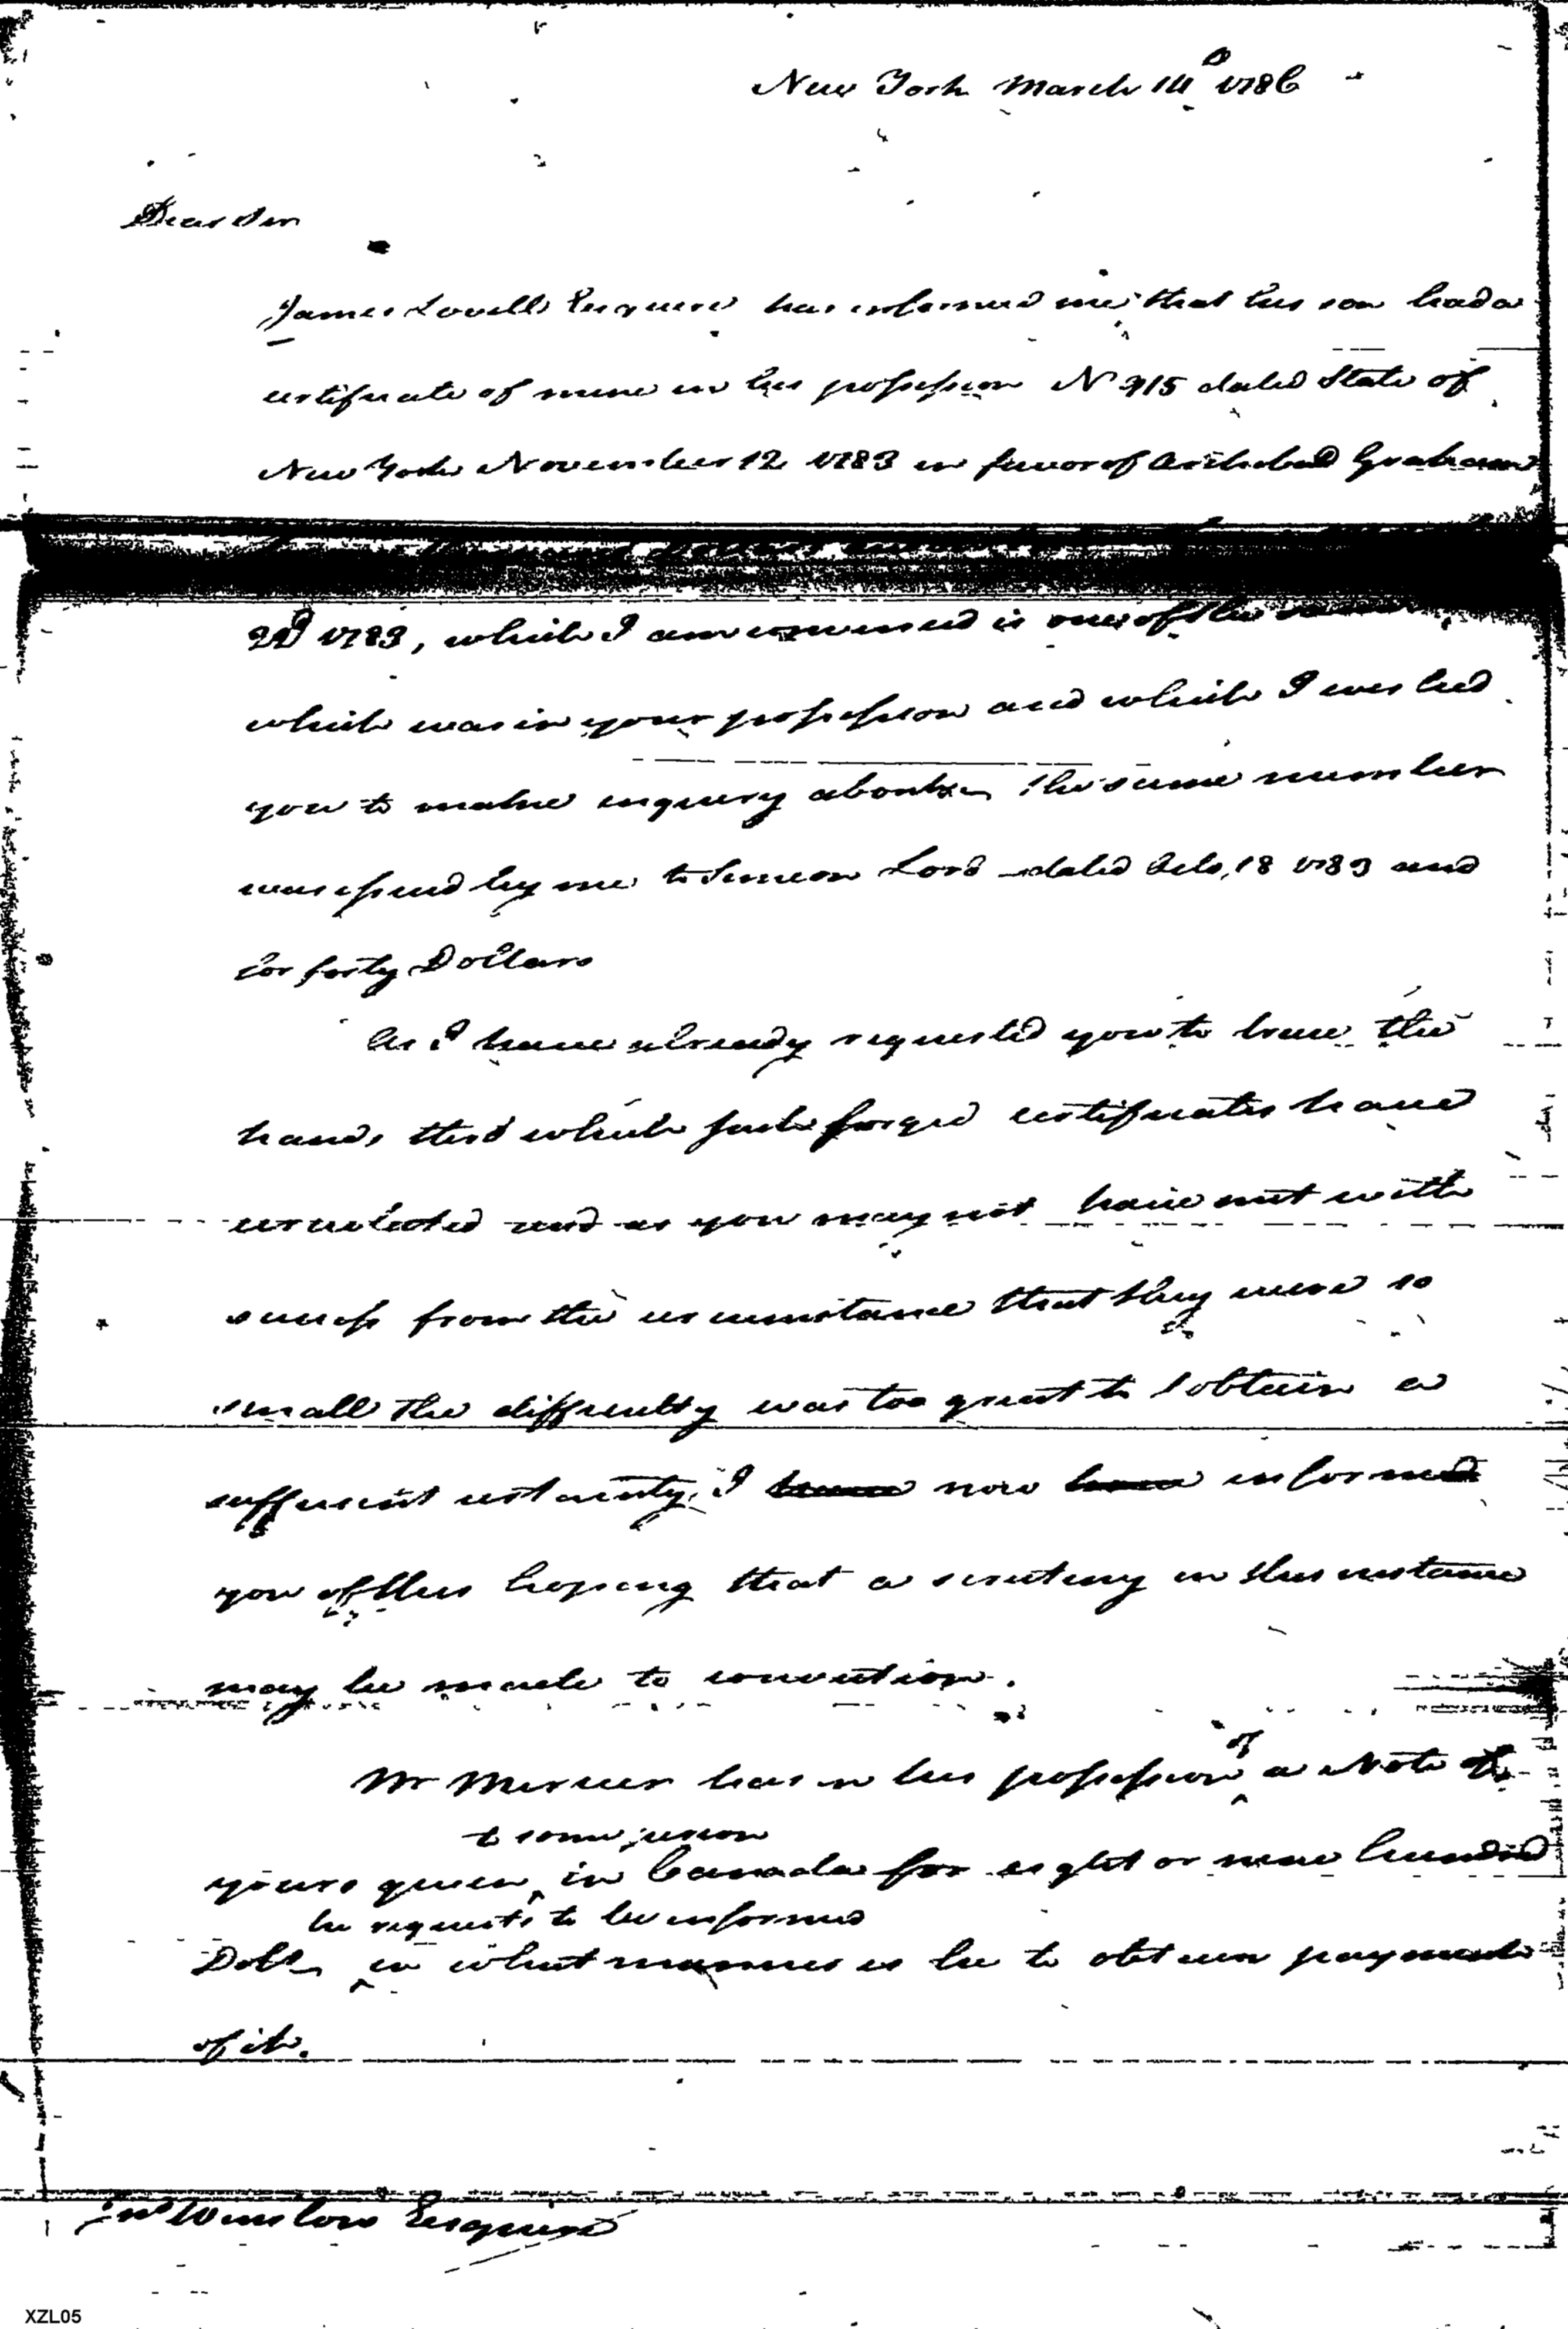 New York March 14th 1786
Dear Sir
James Lovell Esquire has informed me that his son had a
certificate of mine in his possession No 915 dated State of
New York November 12 1783 in favor of Archibald Graham
22d 1783, which I am convinced is one of the same
which was in your possession and which I was led
you to make enquiry about. The same number
was issued by me to Simeon Lord dated Feb. 18 1783 and
for forty Dollars
As I have already requested you to trace the
hands thro which such forged certificates have
circulated and as you may not have met with
success from the circumstance that they were so
small the difficulty was too great to obtain a
sufficient certainty, I now inform
you of this hoping that a scrutiny in this instance
may be made to conviction.
Mr Mercier has in his possession of a Note of
to some person
yours given in Canada for eight or nine hundred
he requests to be informed
Dolls in what manner is he to obtain payment
of it.
Jno Winslow Esquire
XZL05